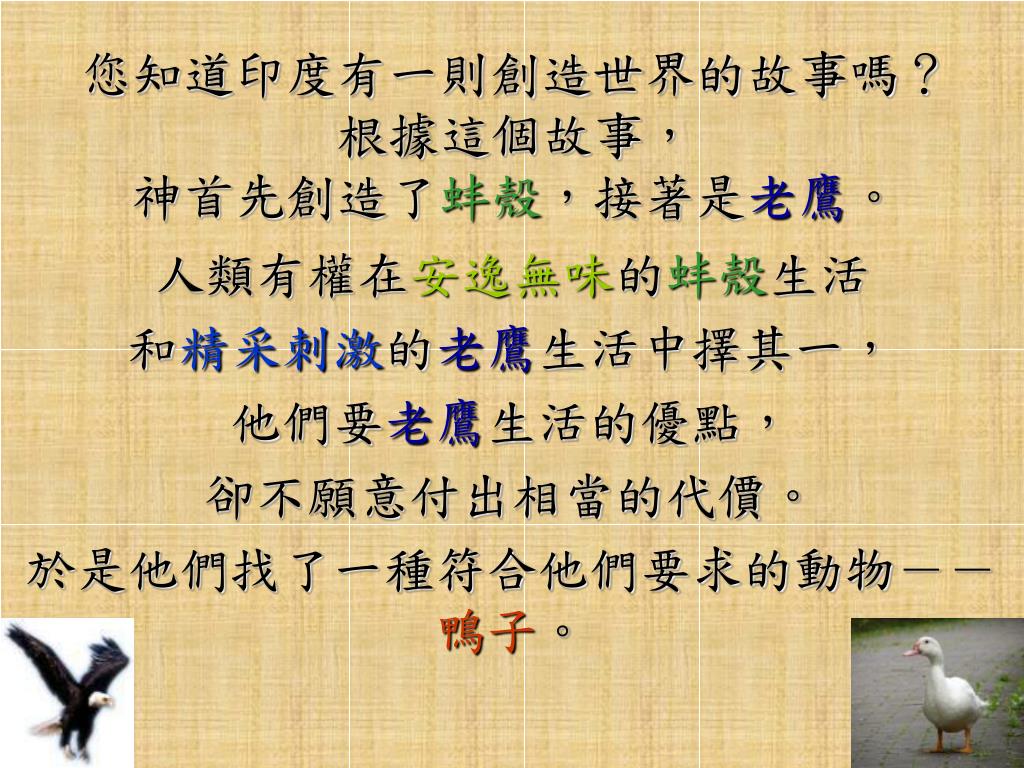 您知道印度有一則創造世界的故事嗎？
根據這個故事，
神首先創造了蚌殼，接著是老鷹。
人類有權在安逸無味的蚌殼生活
和精采刺激的老鷹生活中擇其一，
他們要老鷹生活的優點，
卻不願意付出相當的代價。
於是他們找了一種符合他們要求的動物－－
鴨子。